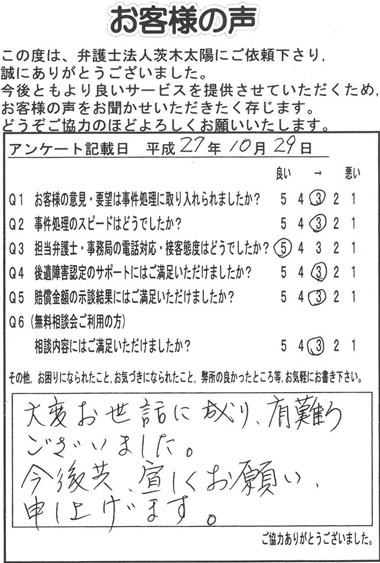 お客様の声
この度は、弁護士法人茨木太陽にご依頼下さり、
誠にありがとうございました。
今後ともより良いサービスを提供させていただくため、
お客様の声をお聞かせいただきたく存じます。
どうぞご協力のほどよろしくお願いいたします。
アンケート記載日 平成27年10月29日
良い → 悪い
Q1 お客様の意見・要望は事件処理に取り入れられましたか? 5 4 3 2 1
Q2 事件処理のスピードはどうでしたか? 5 4 3 2 1
Q3 担当弁護士・事務局の電話対応・接客態度はどうでしたか? 5 4 3 2 1
Q4 後遺障害認定のサポートにはご満足いただけましたか? 5 4 3 2 1
Q5 賠償金額の示談結果にはご満足いただけましたか? 5 4 3 2 1
Q6 (無料相談会ご利用の方)
相談内容にはご満足いただけましたか? 5 4 3 2 1
その他、お困りになられたこと、お気づきになられたこと、弊所の良かったところ等、お気軽にお書き下さい。
大変お世話に成り、有難う
ございました。
今後共、宜しくお願い、
申し上げます。
ご協力ありがとうございました。